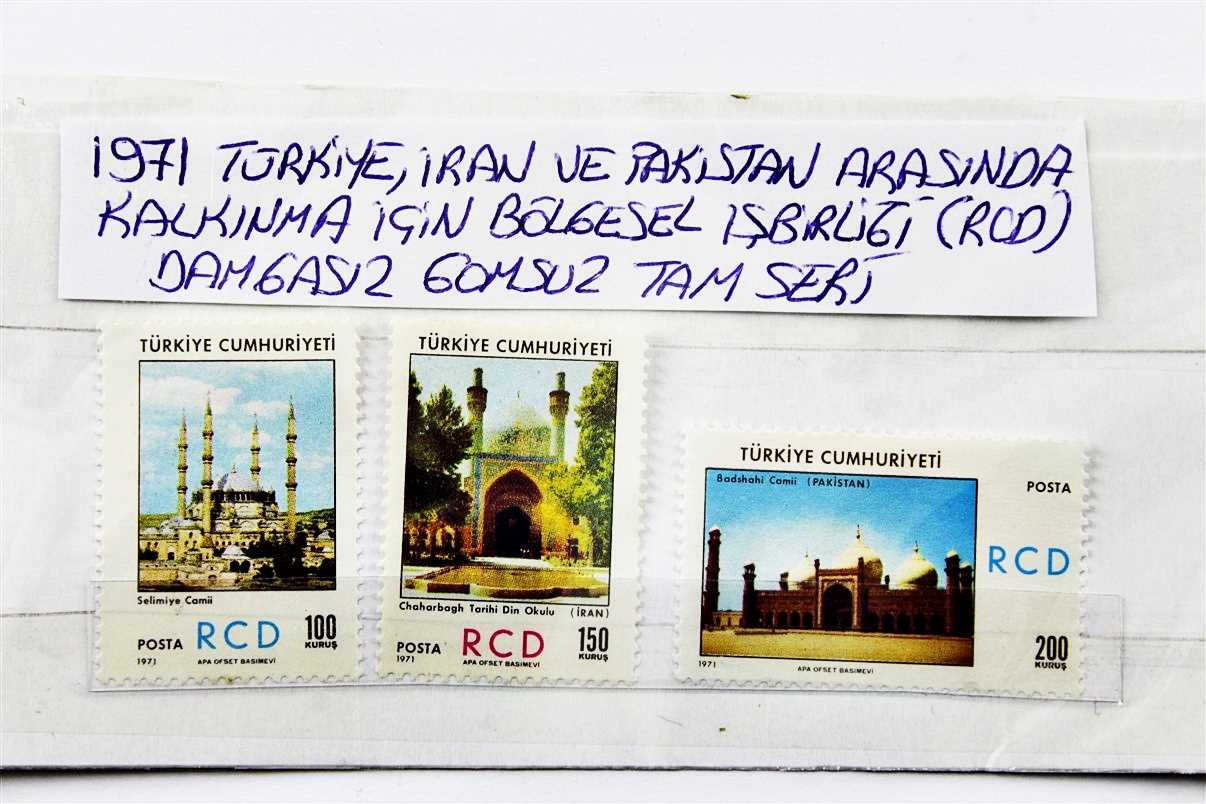 1971 TÜRKİYE, İRAN VE PAKİSTAN ARASINDA
KALKINMA İÇİN BÖLGESEL İŞBİRLİĞİ (RCD)
DAMGASIZ GOMSUZ TAM SERİ
TÜRKİYE CUMHURİYETİ
Selimiye Camii
POSTA RCD 100
KURUŞ
1971 APA OFSET BASIMEVİ
TÜRKİYE CUMHURİYETİ
Chaharbagh Tarihi Din Okulu (İRAN)
POSTA RCD 150
KURUŞ
1971 APA OFSET BASIMEVİ
TÜRKİYE CUMHURİYETİ
Badshahi Camii (PAKİSTAN)
POSTA
RCD
200
KURUŞ
1971 APA OFSET BASIMEVİ